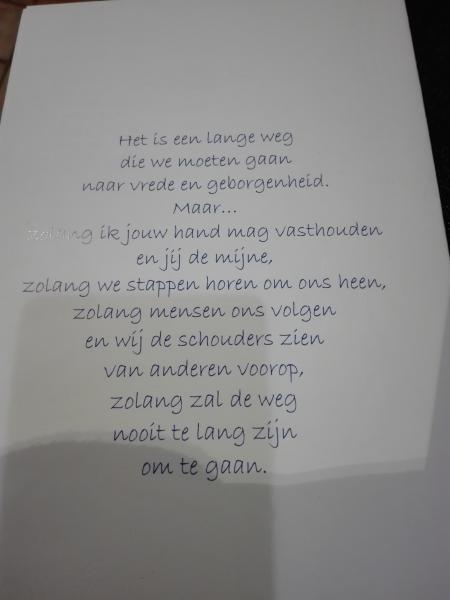 Het is een lange weg
die we moeten gaan
naar vrede en geborgenheid.
Maar...
zolang ik jouw hand mag vasthouden
en jij de mijne,
zolang we stappen horen om ons heen,
zolang mensen ons volgen
en wij de schouders zien
van anderen voorop,
zolang zal de weg
nooit te lang zijn
om te gaan.